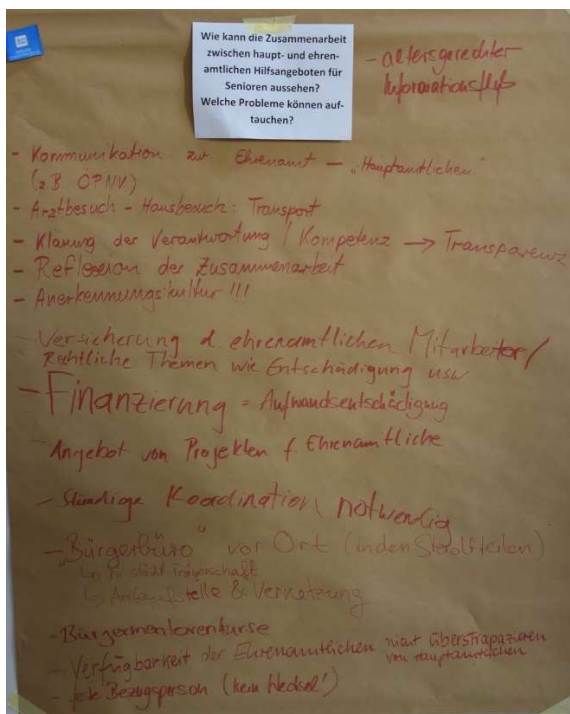 Wie kann die Zusammenarbeit
zwischen haupt- und ehren-
amtlichen Hilfsangeboten für
Senioren aussehen?
Welche Probleme können auf-
tauchen?
- altersgerechter
Informationsfluß
- Kommunikation zur Ehrenamt - "Hauptamtlichen"
(z.B ÖPNV)
- Arztbesuch - Hausbesuch: Transport
- Klärung der Verantwortung / Kompetenz → Transparenz
- Reflexion der Zusammenarbeit
- Anerkennungskultur !!!
- Versicherung d. ehrenamtlichen Mitarbeiter /
Rechtliche Themen wie Entschädigung usw
- Finanzierung = Aufwandsentschädigung
- Angebot von Projekten f. Ehrenamtliche
- Ständige Koordination notwendig
- "Bürgerbüro" vor Ort (in den Stadtteilen)
↳ städt Trägerschaft
↳ & Vernetzung
- Bürgermentorenkurse
- Verfügbarkeit der Ehrenamtlichen nicht überstrapazieren
von Hauptamtlichen
- feste Bezugsperson (kein Wechsel!)